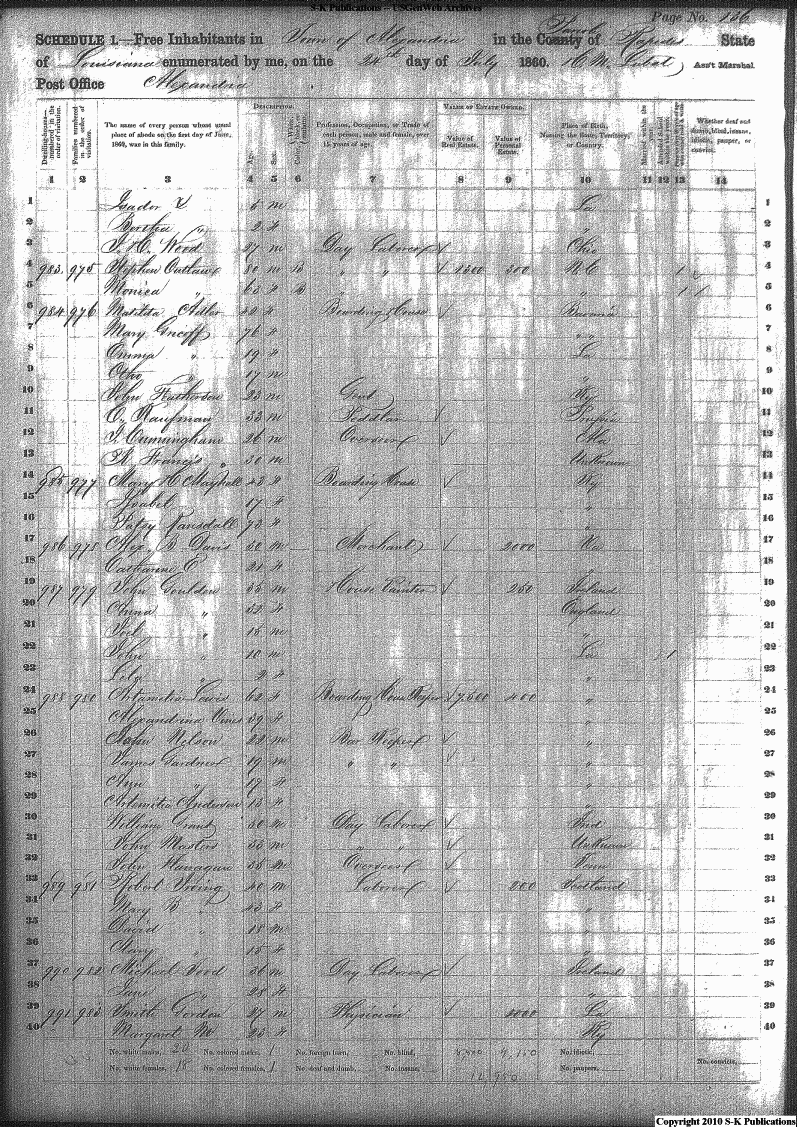 S-K Publications -- USGenWeb Archives
Page No. 136
SCHEDULE 1.—Free Inhabitants in Town of Alexandria in the County of Parish Rapides State
of Louisiana enumerated by me, on the 24th day of July 1860. Ass't Marshal.
Post Office Alexandria
DESCRIPTION. VALUE OF ESTATE OWNED.
Dwelling-houses—numbered in the order of visitation. Families numbered in the order of visitation. The name of every person whose usual place of abode on the first day of June, 1860, was in this family. Age. Sex. Profession, Occupation, or Trade of each person, male and female, over 15 years of age. Value of Real Estate. Value of Personal Estate. Place of Birth, Naming the State, Territory, or Country. Married within the year. Whether deaf and dumb, blind, insane, idiotic, pauper, or convict.
1 2 3 4 5 6 7 8 9 10 11 12 13 14
1 6 m La 1
2 Bertha " 2 f " 2
3 J. H. Wood 27 m Day Laborer Ohio 3
4 983 975 Stephen Outlaw 80 m B " " 1300 300 N C 1 4
5 Monica " 63 f B " 1 5
6 984 976 Matilda Adler 42 f Boarding House Bavaria 6
7 Mary 76 f " " 7
8 Emma " 19 f La 8
9 Otho " 17 m " 9
10 John 23 m Gent Ky 10
11 C. Kaufman 33 m Peddlar Prussia 11
12 J. Cunningham 26 m Overseer Ala 12
13 Francis 30 m Unknown 13
14 985 977 Mary H. 43 f Boarding House Ky 14
15 Isabel " 17 f " 15
16 Patsy Ransdall 73 f " 16
17 986 978 Alex B Davis 30 m Merchant 2000 Va 17
18 Catharine E 21 f " 18
19 987 979 John Goulden 35 m House Painter 250 Ireland 19
20 Anna " 32 f England 20
21 Joel " 15 m " 21
22 John " 10 m La 1 22
23 " 2 f " 23
24 988 980 Artamelia Lewis 62 f Boarding House Keeper 7,500 400 " 24
25 Alexandrina Vines 39 f " 25
26 John Nelson 22 m Bar Keeper " 26
27 James Gardner 19 m " " " 27
28 Ann " 17 f " 28
29 Artemitia Anderson 13 f " 29
30 William Grant 30 m Day Laborer Ind 30
31 John Masters 33 m " " Unknown 31
32 John Flanagan 35 m Overseer Tenn 32
33 989 981 Robert Irving 40 m Laborer 200 Scotland 33
34 Mary B " 43 f " 34
35 David " 18 m " 35
36 Mary " 15 f " 36
37 990 982 Michael Wood 36 m Day Laborer Ireland 37
38 Jane " 28 f " 38
39 991 983 Smith Gordon 27 m Physician 5000 La 39
40 Margaret " 23 f Ky 40
No. white males, 20 No. colored males, 1 No. foreign born, No. blind, No. idiotic, No. convicts,
No. white females, 18 No. colored females, 1 No. deaf and dumb, No. insane, No. paupers,
Copyright 2010 S-K Publications